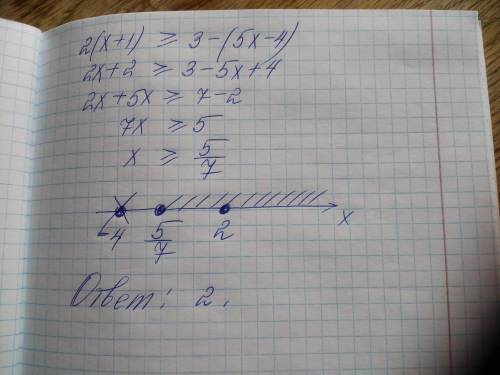 2(x+1) ≥ 3-(5x-4)
2x+2 ≥ 3-5x+4
2x+5x ≥ 7-2
7x ≥ 5
x ≥ 5/7
-4 5/7 2 x
Ответ: 2.